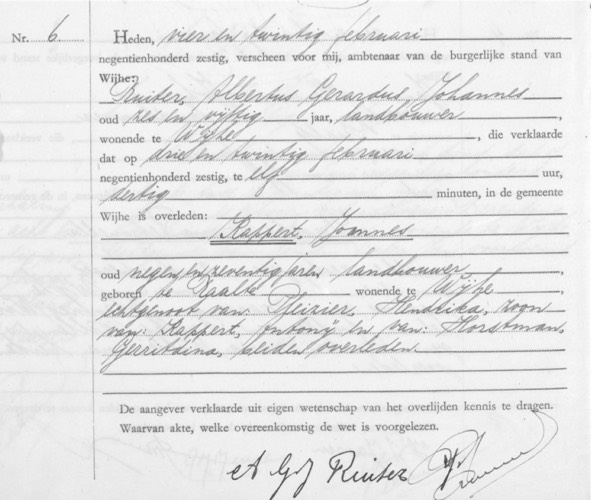 Nr. 6.
Heden, vier en twintig februari
negentienhonderd zestig, verscheen voor mij, ambtenaar van de burgerlijke stand van
Wijhe:
Ruiter, Albertus Gerardus Johannes
oud zes en vijftig jaar, landbouwer,
wonende te Wijhe, die verklaarde
dat op drie en twintig februari
negentienhonderd zestig, te elf uur,
dertig minuten, in de gemeente
Wijhe is overleden:
Kappert, Joannes
oud negen en zeventig jaren, landbouwer,
geboren te Raalte wonende te Wijhe,
echtgenoot van: Plezier, Hendrika, zoon
van: Kappert, Antonij en van: Horstman,
Gerritdina, beiden overleden.
De aangever verklaarde uit eigen wetenschap van het overlijden kennis te dragen.
Waarvan akte, welke overeenkomstig de wet is voorgelezen.
A G J Ruiter